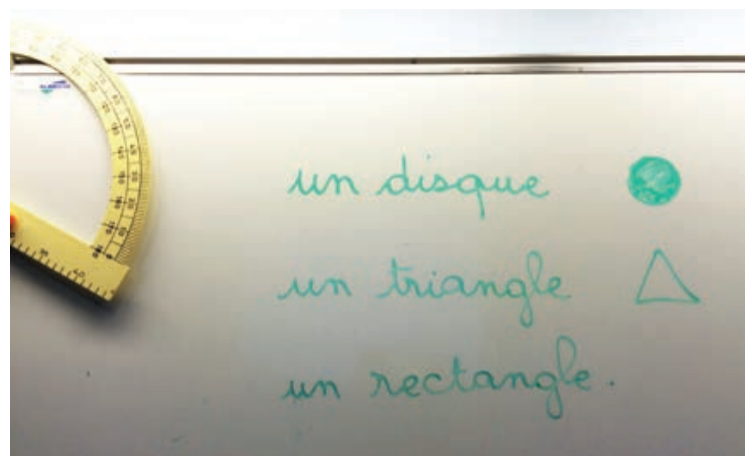 un disque
un triangle
un rectangle.